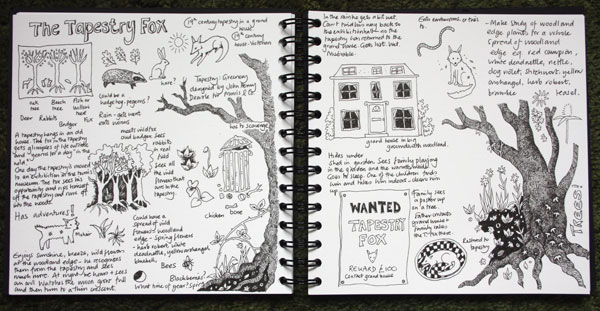 The Tapestry Fox
19th century tapestry in a grand
house?
19th century
house - Victorian
oak
tree
Beech
tree
Ash or
Willow
tree
Deer
Rabbits
Badger
Fox
Could be a
hedge hog-
hare?
Rain - gets wet
Tapestry Greenery
designed by John Henry
Dearle for Morris & Co
A tapestry hangs in an old
house. The fox in the tapestry
gets glimpses of life outside
and "yearns for a day" in "the
wild"
One day the tapestry is moved
to an exhibition in the town's
museum. The fox sees his
opportunity and rips himself
off the tapestry and runs off
into the woods.
meets wild fox
and badger. Sees
rabbits
in real
field
Sees all
the wild
flowers that
are in the
tapestry
has to scavenge
chicken
bone
Has adventures!
Could have a
spread of wild
flowers / woodland
edge - Spring flowers
- herb robert, white
deadnettle, yellow archangel
bluebell,
Bees
Blackberries?
What time of year? Spring
Enjoys sunshine, breeze, wild flowers
of the woodland edge - he recognises
them from the tapestry and sees
much more. At night he hears + sees
an owl. Watches the moon grow full
and then turn to a thin crescent.
In the rain he gets a bit wet.
Can't find his way back to
the exhibition
tapestry has returned to the
grand home. Gets lost. Sad.
Miserable.
Eats earthworms, or tries to.
- Make Study of woodland
edge plants for a whole
Spread of woodland
edge eg. red campion,
white deadnettle, nettle,
dog violet, stitchwort, yellow
archangel, herb robert,
bramble
teasel.
grand house in big
grounds with woodland.
Hides under
shed in garden. Sees family playing
in the garden
Cries to sleep. One of the children finds
him and takes him indoors
up
WANTED
TAPESTRY
FOX
REWARD £100
Contact grand house
Family sees
a poster up
on a tree.
Father contacts
grand house +
family takes
the T-Fox there.
Restored to
tapestry
Trees!